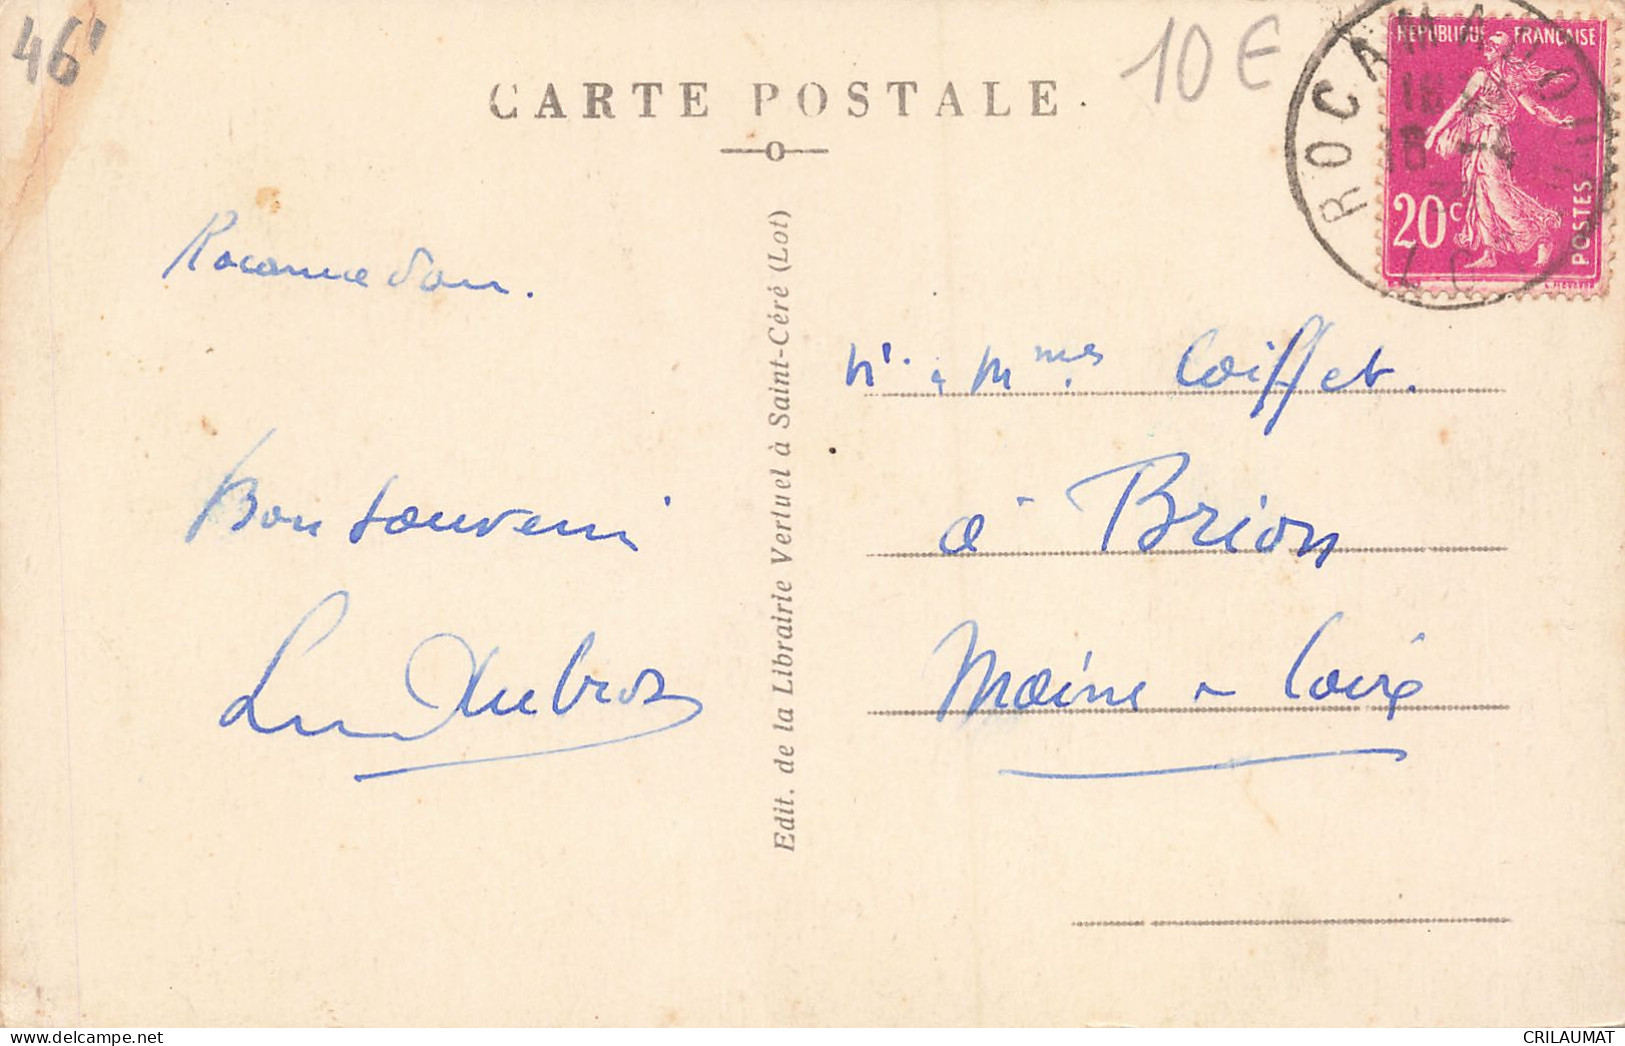 46'
10 €
CARTE POSTALE
REPUBLIQUE FRANÇAISE
20c
POSTES
ROCAMADOUR
LOT
Rocamadour.
Bon souvenir
Edit. de la Librairie Vertuel à Saint-Céré (Lot)
Mr. & Mmes Coiffet.
à Brion
Maine & Loire
CRILAUMAT